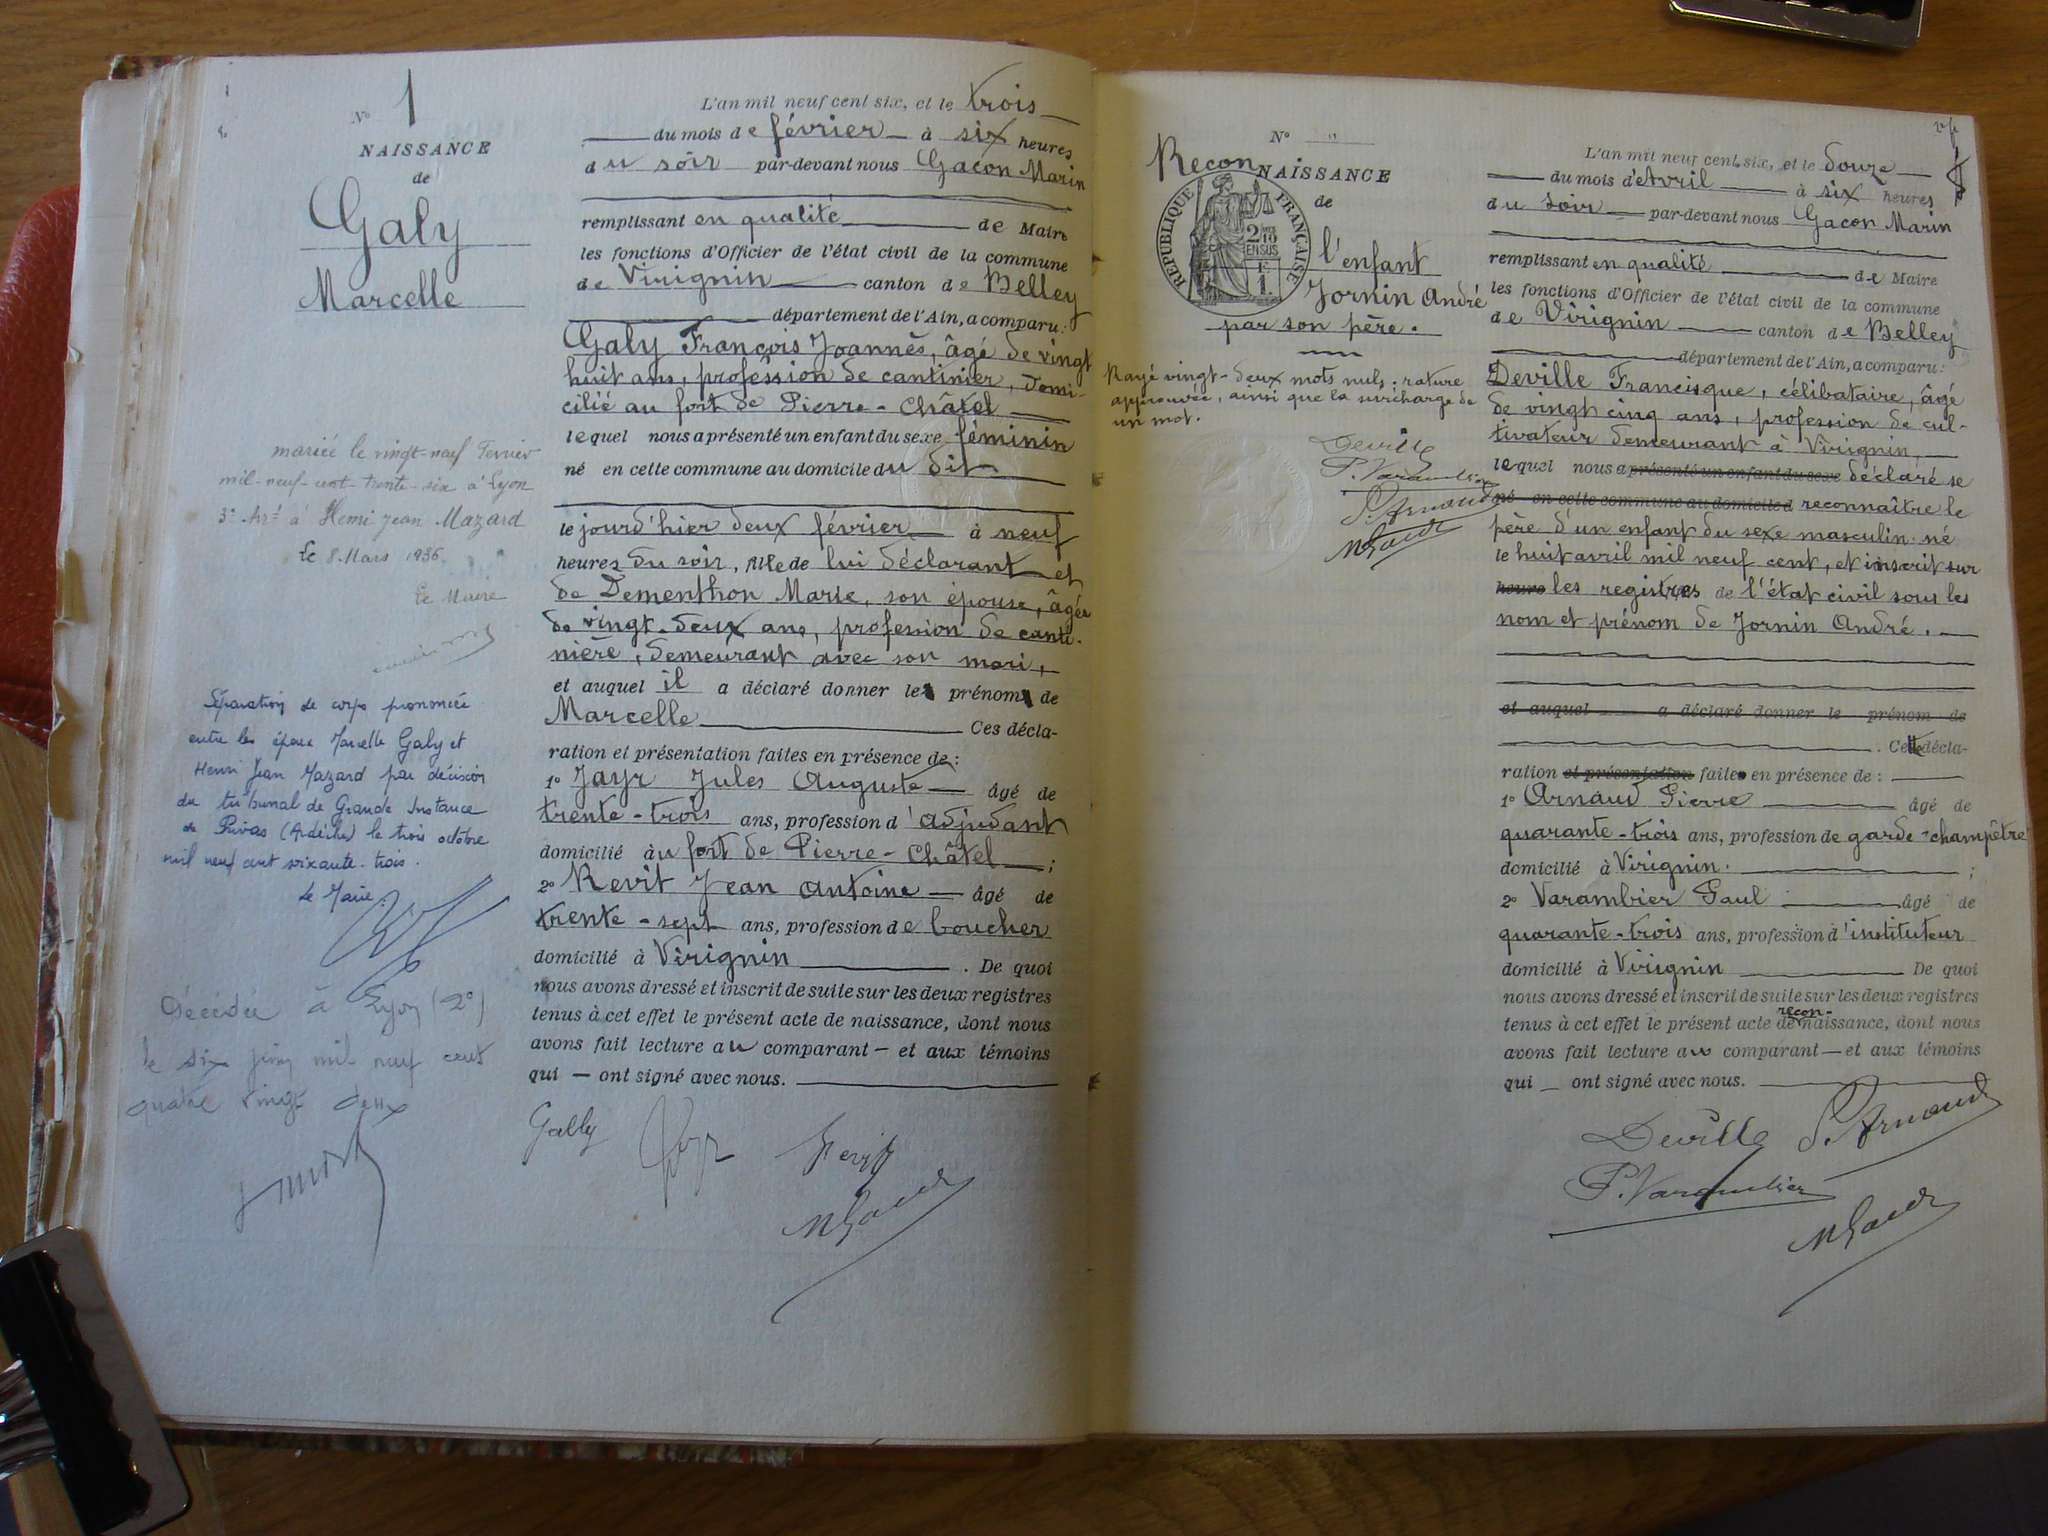 N° 1
NAISSANCE
de
Galy
Marcelle
mariée le vingt-neuf Fevrier
mil-neuf-cent-trente-six à Lyon
3e Arrt à Henri Jean Mazard
Le 8 Mars 1936
Le Maire
Séparation de corps prononcée
entre les époux Marcelle Galy et
Henri Jean Mazard par décision
du tribunal de Grande Instance
de Privas (Ardèche) le trois octobre
mil neuf cent soixante-trois.
Le Maire.
Décédée à Lyon (2e)
le six juin mil neuf cent
quatre vingt deux
L'an mil neuf cent six, et le trois
du mois de février à six heures
du soir par-devant nous Gacon Marin
remplissant en qualité de Maire
les fonctions d'Officier de l'état civil de la commune
de Virignin canton de Belley
département de l'Ain, a comparu:
Galy François Joannès, âgé de vingt
huit ans, profession de cantinier, domi-
cilié au fort de Pierre-Châtel
lequel nous a présenté un enfant du sexe féminin
né en cette commune au domicile du dit
le jourd'hier deux février à neuf
heures du soir, fille de lui déclarant et
de Dementhon Marie, son épouse, âgée
de vingt-deux ans, profession de canti-
nière, demeurant avec son mari,
et auquel il a déclaré donner le prénom de
Marcelle Ces décla-
ration et présentation faites en présence de:
1° Jayr Jules Auguste âgé de
trente-trois ans, profession d'adjudant
domicilié au fort de Pierre-Châtel ;
2° Revit Jean Antoine âgé de
trente-sept ans, profession de boucher
domicilié à Virignin . De quoi
nous avons dressé et inscrit de suite sur les deux registres
tenus à cet effet le présent acte de naissance, dont nous
avons fait lecture au comparant — et aux témoins
qui — ont signé avec nous.
Gally Jayr Revit
MGacon
N° "
ReconNAISSANCE
de
RÉPUBLIQUE FRANÇAISE
2/10
EN SUS
l'enfant
Jornin André
par son père.
Rayé vingt-deux mots nuls; rature
approuvée, ainsi que la surcharge de
un mot.
Deville
P. Varambier
P. Arnaud
MGacon
L'an mil neuf cent six, et le douze
du mois d'Avril à six heures
du soir par-devant nous Gacon Marin
remplissant en qualité de Maire
les fonctions d'Officier de l'état civil de la commune
de Virignin canton de Belley
département de l'Ain, a comparu:
Deville Francisque, célibataire, âgé
de vingt cinq ans, profession de cul-
tivateur demeurant à Virignin,
lequel nous a présenté un enfant du sexe déclaré se
né en cette commune au domicile d reconnaître le
père d'un enfant du sexe masculin né
le huit avril mil neuf cent, et inscrit sur
heure les registres de l'état civil sous les
nom et prénom de Jornin André.
et auquel a déclaré donner le prénom de
. Cette décla-
ration et présentation faite en présence de:
1° Arnaud Pierre âgé de
quarante-trois ans, profession de garde-champêtre
domicilié à Virignin. ;
2° Varambier Paul âgé de
quarante-trois ans, profession d'instituteur
domicilié à Virignin De quoi
nous avons dressé et inscrit de suite sur les deux registres
tenus à cet effet le présent acte de reconnaissance, dont nous
avons fait lecture au comparant — et aux témoins
qui — ont signé avec nous.
Deville P. Arnaud
P. Varambier
MGacon